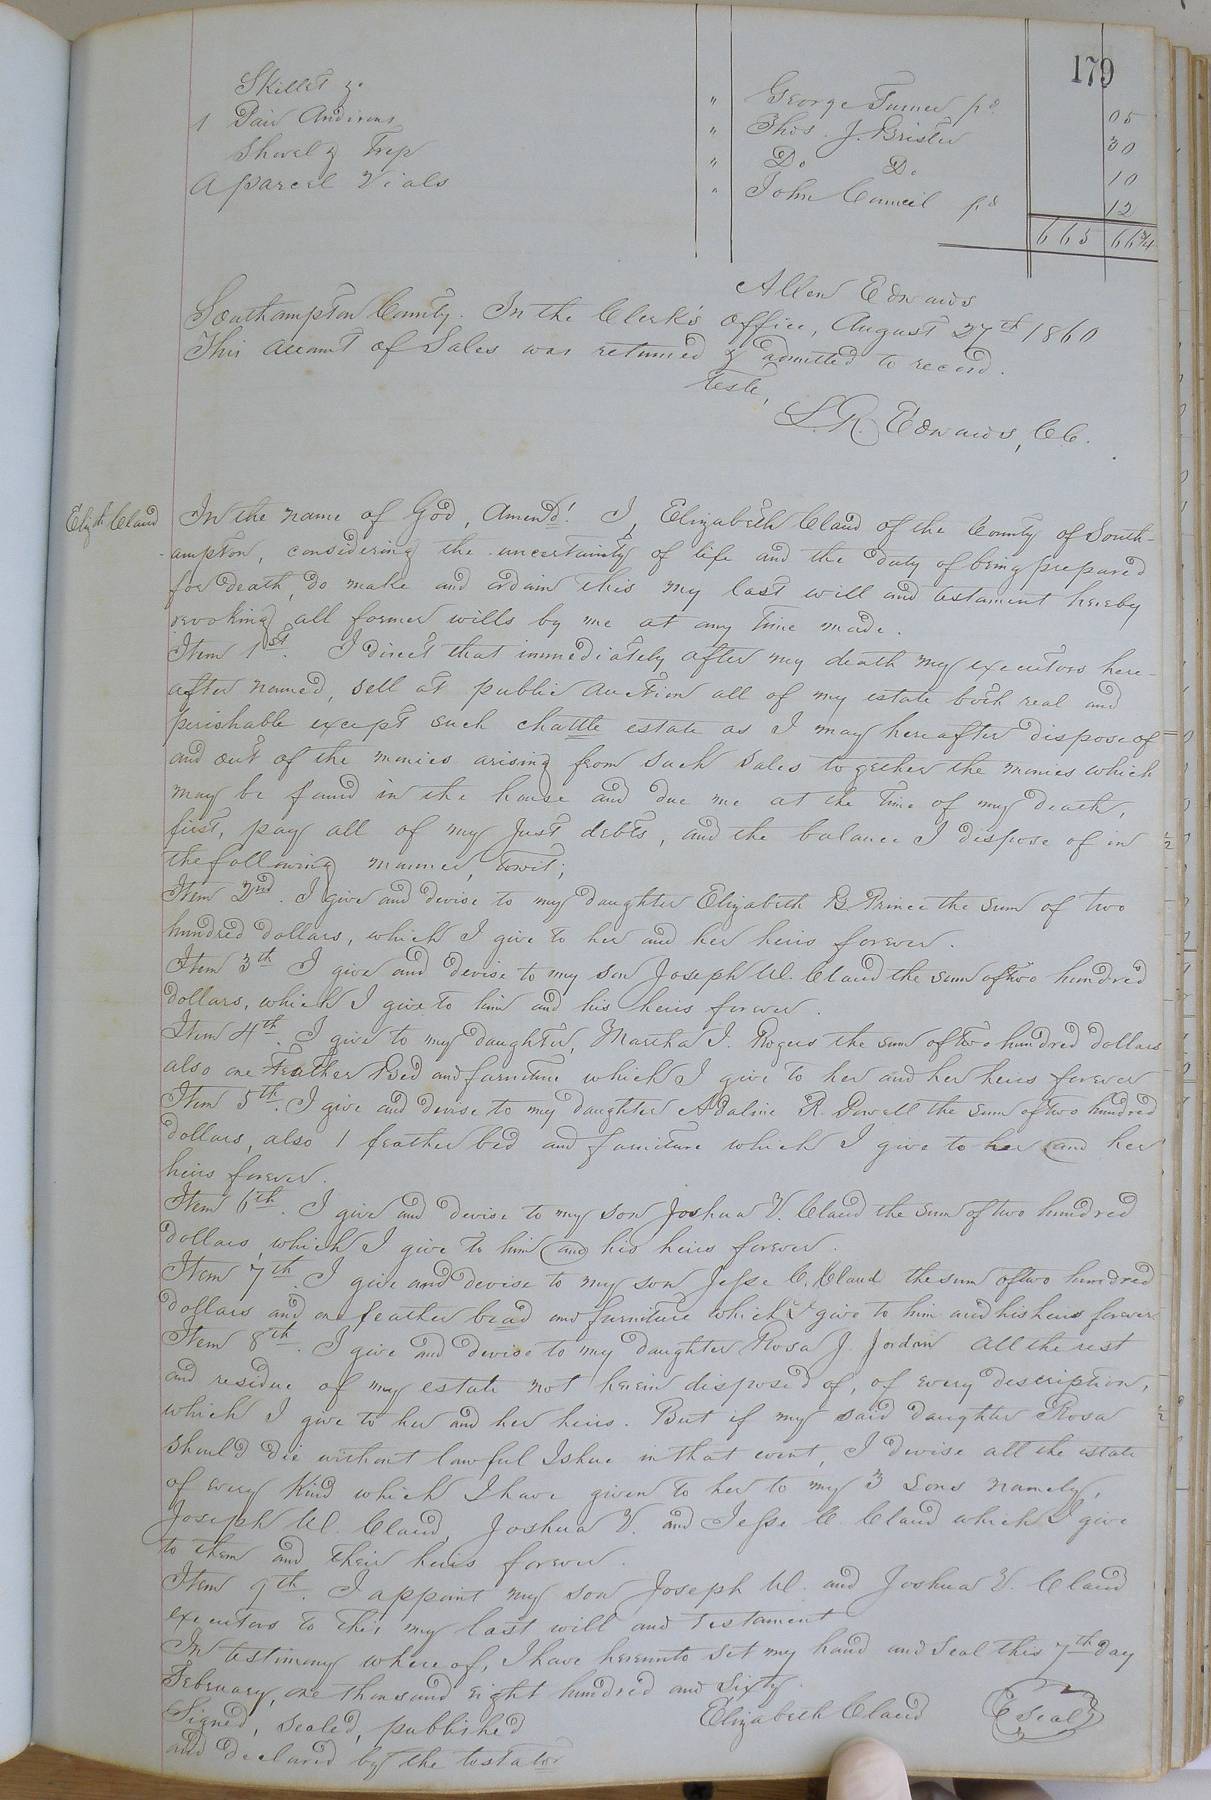 179
Skillet &c
" George Turner pd 05
1 Pair Andirons " Thos. J. Brister 30
Shovel & Trap " Do Do 10
A parcel Vials " John Council pd 12
665 66 3/4
Allen Edwards
Southampton County. In the Clerk's office, August 27th 1860
This account of Sales was returned & admitted to record.
Teste,
L. R. Edwards, C.C.
Elizth Claud
In the name of God, Amen! I, Elizabeth Claud of the County of South-
ampton, considering the uncertainty of life and the duty of being prepared
for death, do make and ordain this my last will and testament hereby
revoking all former wills by me at any time made.
Item 1st. I direct that immediately after my death my executors here-
after named, sell at public auction all of my estate both real and
perishable except such chattle estate as I may hereafter dispose of
and out of the monies arising from such sales together the monies which
may be found in the house and due me at the time of my death,
first, pay all of my just debts, and the balance I dispose of in
the following manner, towit;
Item 2nd. I give and devise to my daughter Elizabeth B. Prince the sum of two
hundred dollars, which I give to her and her heirs forever.
Item 3th I give and devise to my son Joseph W. Claud the sum of two hundred
dollars, which I give to him and his heirs forever.
Item 4th. I give to my daughter, Martha I. Rogers the sum of two hundred dollars
also one Feather Bed and furniture which I give to her and her heirs forever
Item 5th. I give and devise to my daughter Adaline R. Powell the sum of two hundred
dollars, also 1 feather bed and furniture which I give to her and her
heirs forever.
Item 6th. I give and devise to my son Joshua V. Claud the sum of two hundred
dollars, which I give to him and his heirs forever.
Item 7th. I give and devise to my son Jesse C. Claud the sum of two hundred
dollars and one feather bead and furniture which I give to him and his heirs forever
Item 8th. I give and devise to my daughter Rosa J. Jordan all the rest
and residue of my estate not herein disposed of, of every description,
which I give to her and her heirs. But if my said daughter Rosa
should die without lawful Ishue in that event, I devise all the estate
of every kind which I have given to her to my 3 sons namely,
Joseph W. Claud, Joshua V. and Jesse C. Claud which I give
to them and their heirs forever.
Item 9th. I appoint my son Joseph W. and Joshua V. Claud
executors to this my last will and testament
In testimony where of, I have hereunto set my hand and seal this 7th day
February, one thousand eight hundred and sixty.
Signed, sealed, published Elizabeth Claud Seal
and declared by the testator